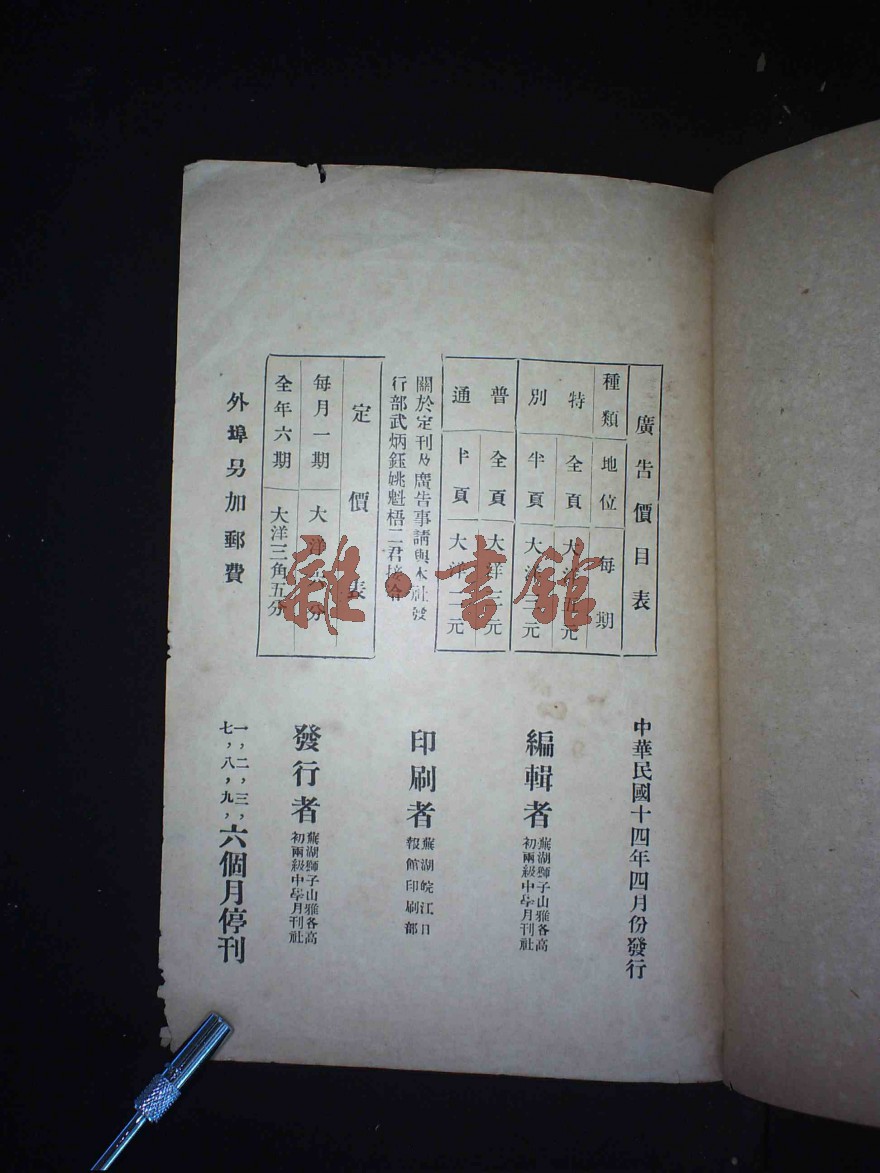 廣告價目表
種類 地位 每期
特別 全頁 大洋五元
半頁 大洋三元
普通 全頁 大洋三元
半頁 大洋二元
關於定刊及廣告事請與本社發
行部武炳鈺姚魁梧二君接洽
定價表
每月一期 大洋 分
全年六期 大洋三角五分
外埠另加郵費
中華民國十四年四月份發行
編輯者
蕪湖獅子山雅各高
初兩級中學月刊社
印刷者
蕪湖皖江日
報館印刷部
發行者
蕪湖獅子山雅各高
初兩級中學月刊社
一,二,三,
七,八,九,六個月停刊
雜·書館